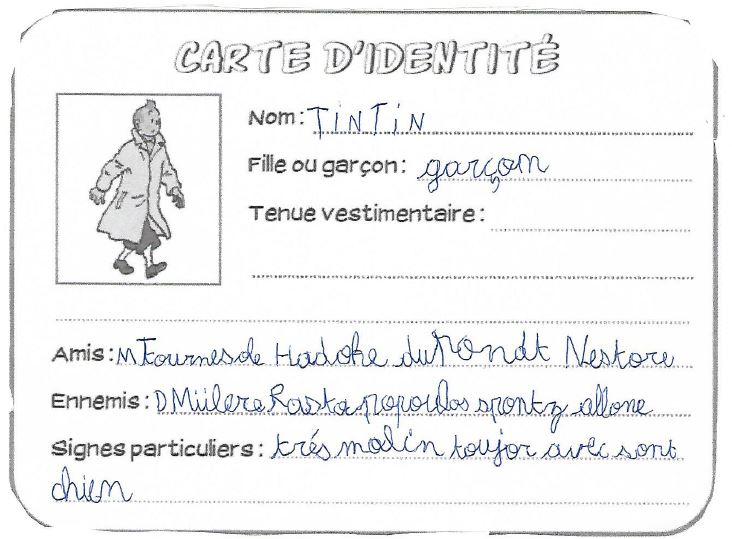 CARTE D'IDENTITÉ
Nom : TiNTiN
Fille ou garçon : garçon
Tenue vestimentaire :
Amis : M Tournesole Hadoke duPondt Nestore
Ennemis : D Mülere Rastapopoulos spontz allone
Signes particuliers : trés malin toujor avec sont
chien